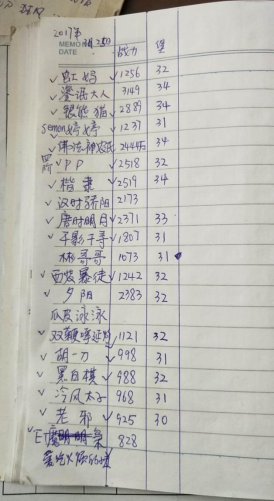 2017年
MEMO NO.
DATE
战力 堡
虹妈 1256 32
大人 3149 34
银熊猫 2889 34
semen婷婷 1237 31
PP 2518 32
楷隶 2519 34
汉时骄阳 2173
唐时明月 2371 33
千影千寻 1807 31
彬哥哥 1073 31
西发暴徒 1242 32
夕阳 2383 32
瓜皮泳泳
双鞭呼延灼 1121 32
胡一刀 998 31
黑白棋 988 32
冷风太子 968 31
老邪 925 30
828